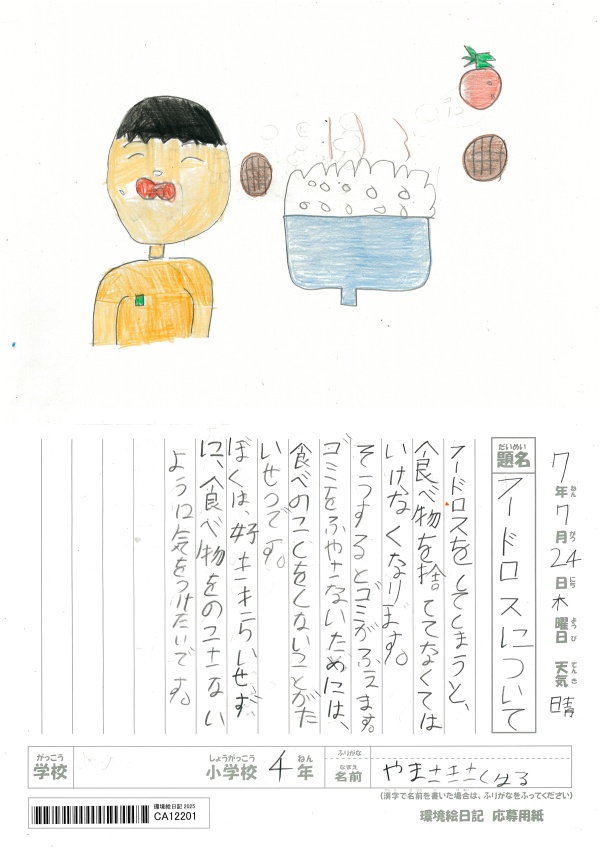 だいめい
題名
フードロスについて
7年7月24日木曜日 天気 晴
ねん がつ にち ようび てんき
フードロスをしてしまうと、
食べ物を捨ててなくては
いけなくなります。
そうするとゴミがふえます。
ゴミをふやさないためには、
食べのこしをしないことがた
いせつです。
ぼくは、好ききらいせず
に、食べ物をのこさない
ように気をつけたいです。
がっこう
学校
しょうがっこう
小学校
4年
ねん
ふりがな
なまえ
名前
やまさきさくはる
(漢字で名前を書いた場合は、ふりがなをふってください)
環境絵日記 2025
CA12201
環境絵日記 応募用紙